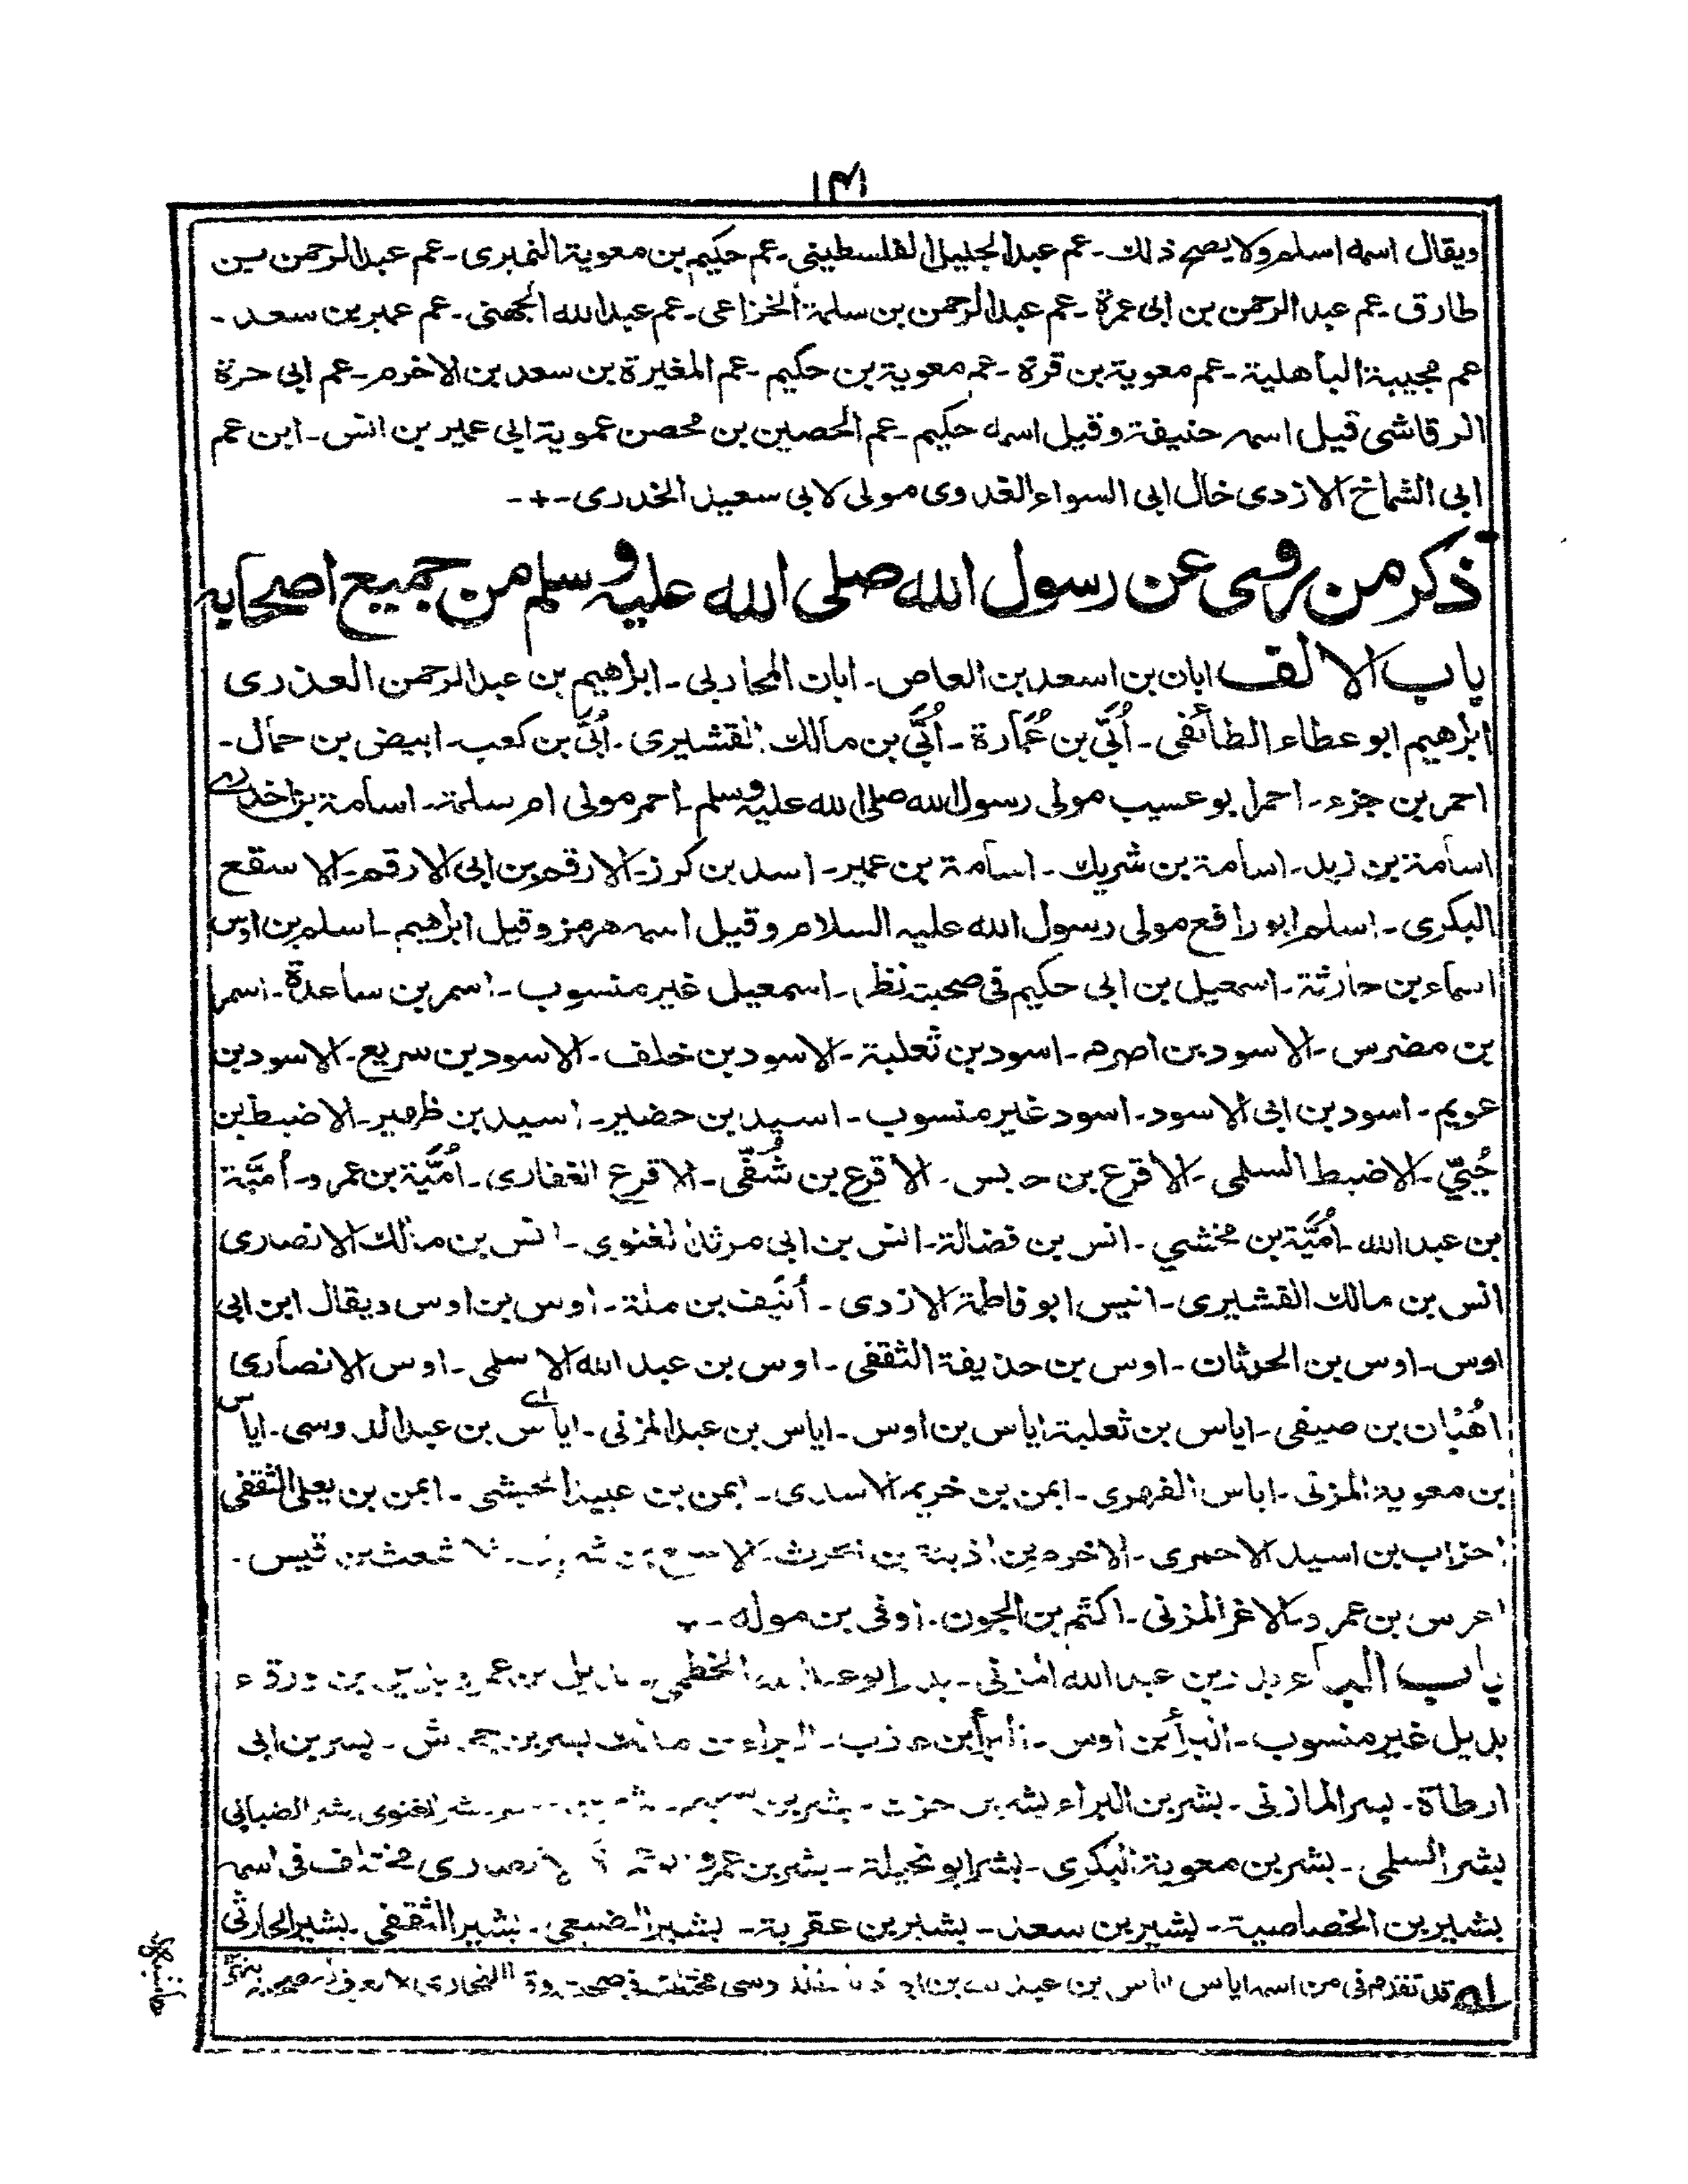 ١٤١
ويقال اسمه اسلم ولا يصح ذلك ـ عم عبد الجليل الفلسطيني ـ عم حكيم بن معوية النميرى ـ عم عبد الرحمن بن
طارق ـ عم عبد الرحمن بن ابى عمرة ـ عم عبد الرحمن بن سلمة الخزاعى ـ عم عبد الله الجهنى ـ عم عمير بن سعد ـ
عم مجيبة الباهلية ـ عم معوية بن قرة ـ عم معوية بن حكيم ـ عم المغيرة بن سعد بن الاخرم ـ عم ابى حرة
الرقاشى قيل اسمه حنيفة وقيل اسمه حكيم ـ عم الحصين بن محصن عمومة ابى عمير بن انس ـ ابن عم
ابى الشماخ الازدى خال ابى السواء العدوى مولى لابى سعيد الخدرى ـ + ـ
ذكر من روى عن رسول الله صلى الله عليه وسلم من جميع اصحابه
باب الالف ابان بن اسعد بن العاص ـ ابان المحاربى ـ ابرهيم بن عبد الرحمن العذرى
ابرهيم ابو عطاء الطائفى ـ أُبَىّ بن عُمَارة ـ أُبَىّ بن مالك القشيرى ـ أُبَىّ بن كعب ـ ابيض بن حمال ـ
احمر بن جزء ـ احمر ابو عسيب مولى رسول الله صلى الله عليه وسلم ـ احمر مولى ام سلمة ـ اسامة بن اخدرى
اسامة بن زيد ـ اسامة بن شريك ـ اسامة بن عمير ـ اسد بن كرز ـ الارقم بن ابى الارقم ـ الاسقع
البكرى ـ اسلم ابو رافع مولى رسول الله عليه السلام وقيل اسمه هرمز وقيل ابرهيم ـ اسلم بن اوس
اسماء بن حارثة ـ اسمعيل بن ابى حكيم فى صحبته نظر ـ اسمعيل غير منسوب ـ اسمر بن ساعدة ـ اسمر
بن مضرس ـ الاسود بن اصرم ـ اسود بن ثعلبة ـ الاسود بن خلف ـ الاسود بن سريع ـ الاسود بن
عويم ـ اسود بن ابى الاسود ـ اسود غير منسوب ـ اسيد بن حضير ـ اسيد بن ظهير ـ الاضبط بن
حُيَىّ ـ الاضبط السلمى ـ الاقرع بن حابس ـ الاقرع بن شُفَىّ ـ الاقرع الغفارى ـ أُمَيَّة بن عمرو ـ أُمَيَّة
بن عبد الله ـ أُمَيَّة بن مخشي ـ انس بن فضالة ـ انس بن ابى مرثد الغنوى ـ انس بن مالك الانصارى
انس بن مالك القشيرى ـ انيس ابو فاطمة الازدى ـ أُنَيف بن ملة ـ اوس بن اوس ويقال ابن ابى
اوس ـ اوس بن الحرثان ـ اوس بن حذيفة الثقفى ـ اوس بن عبد الله الاسلمى ـ اوس الانصارى
اُهْبَان بن صيفى ـ اياس بن ثعلبة اياس بن اوس ـ اياس بن عبد المزنى ـ اياس بن عبد الدوسى ـ اياس
بن معوية المزنى ـ اياس الفهرى ـ ايمن بن خريم الاسدى ـ ايمن بن عبيد الحبشى ـ ايمن بن يعلى الثقفى
احزاب بن اسيد الاحمرى ـ الاخرم بن اذينة بن الحرث ـ شعث بن قيس ـ
اعرس بن عمرو ـ الاغر المزنى ـ اكثم بن الجون ـ اوفى بن موله ـ
باب الباء بدر بن عبد الله المزنى ـ بدر ابو عبد الله الخطمي ـ بديل بن عمرو بديل بن ورقاء
بديل غير منسوب ـ البرأ بن اوس ـ البرأ بن عازب ـ البراء بن مالك بسر بن جحاش ـ بسر بن ابى
ارطاة ـ بسر المازنى ـ بشر بن البراء بشر بن حزن ـ بشر بن سحيم ـ بشر الغنوى بشر الضبابى
بشر السلمى ـ بشر بن معوية البكرى ـ بشر ابو نحيلة ـ بشر بن عمرو الانصارى مختلف فى اسمه
بشير بن الخصاصية ـ بشير بن سعد ـ بشير بن عقربة ـ بشير الضبعى ـ بشير الثقفى ـ بشير الحارثى
قد تقدم فى من اسمه اياس اياس بن عبد